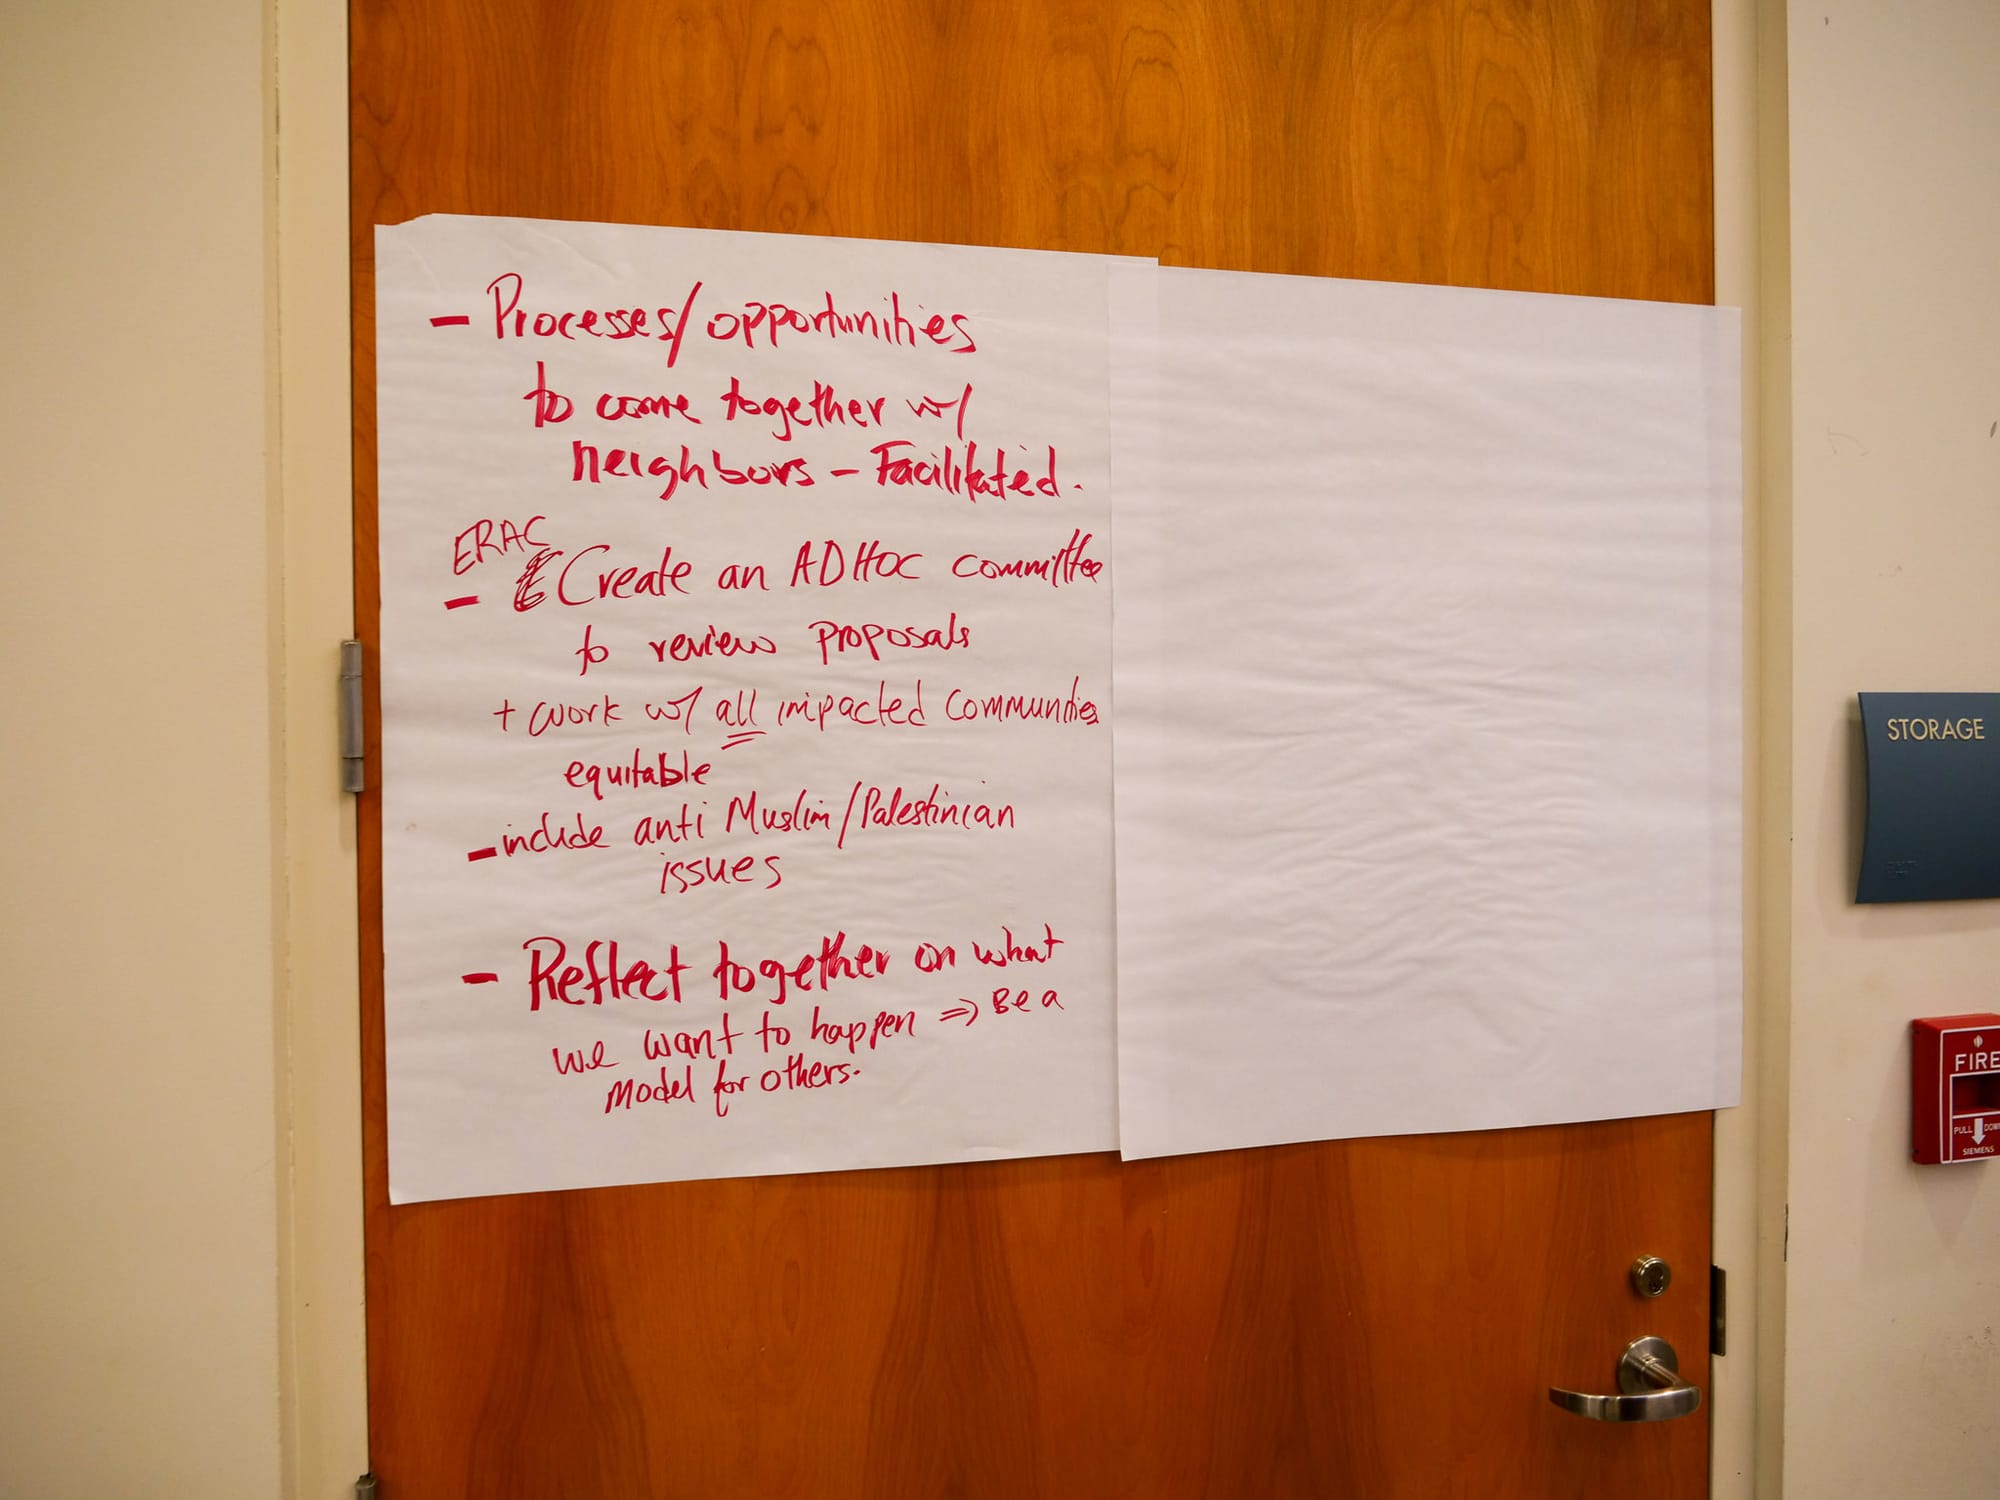 - Processes/opportunities
to come together w/
neighbors - Facilitated.
ERAC
- Create an ADHOC committee
to review proposals
+ work w/ all impacted communities
equitable
- include anti Muslim/Palestinian
issues
- Reflect together on what
we want to happen => Be a
model for others.
STORAGE
FIRE
PULL DOWN
SIEMENS